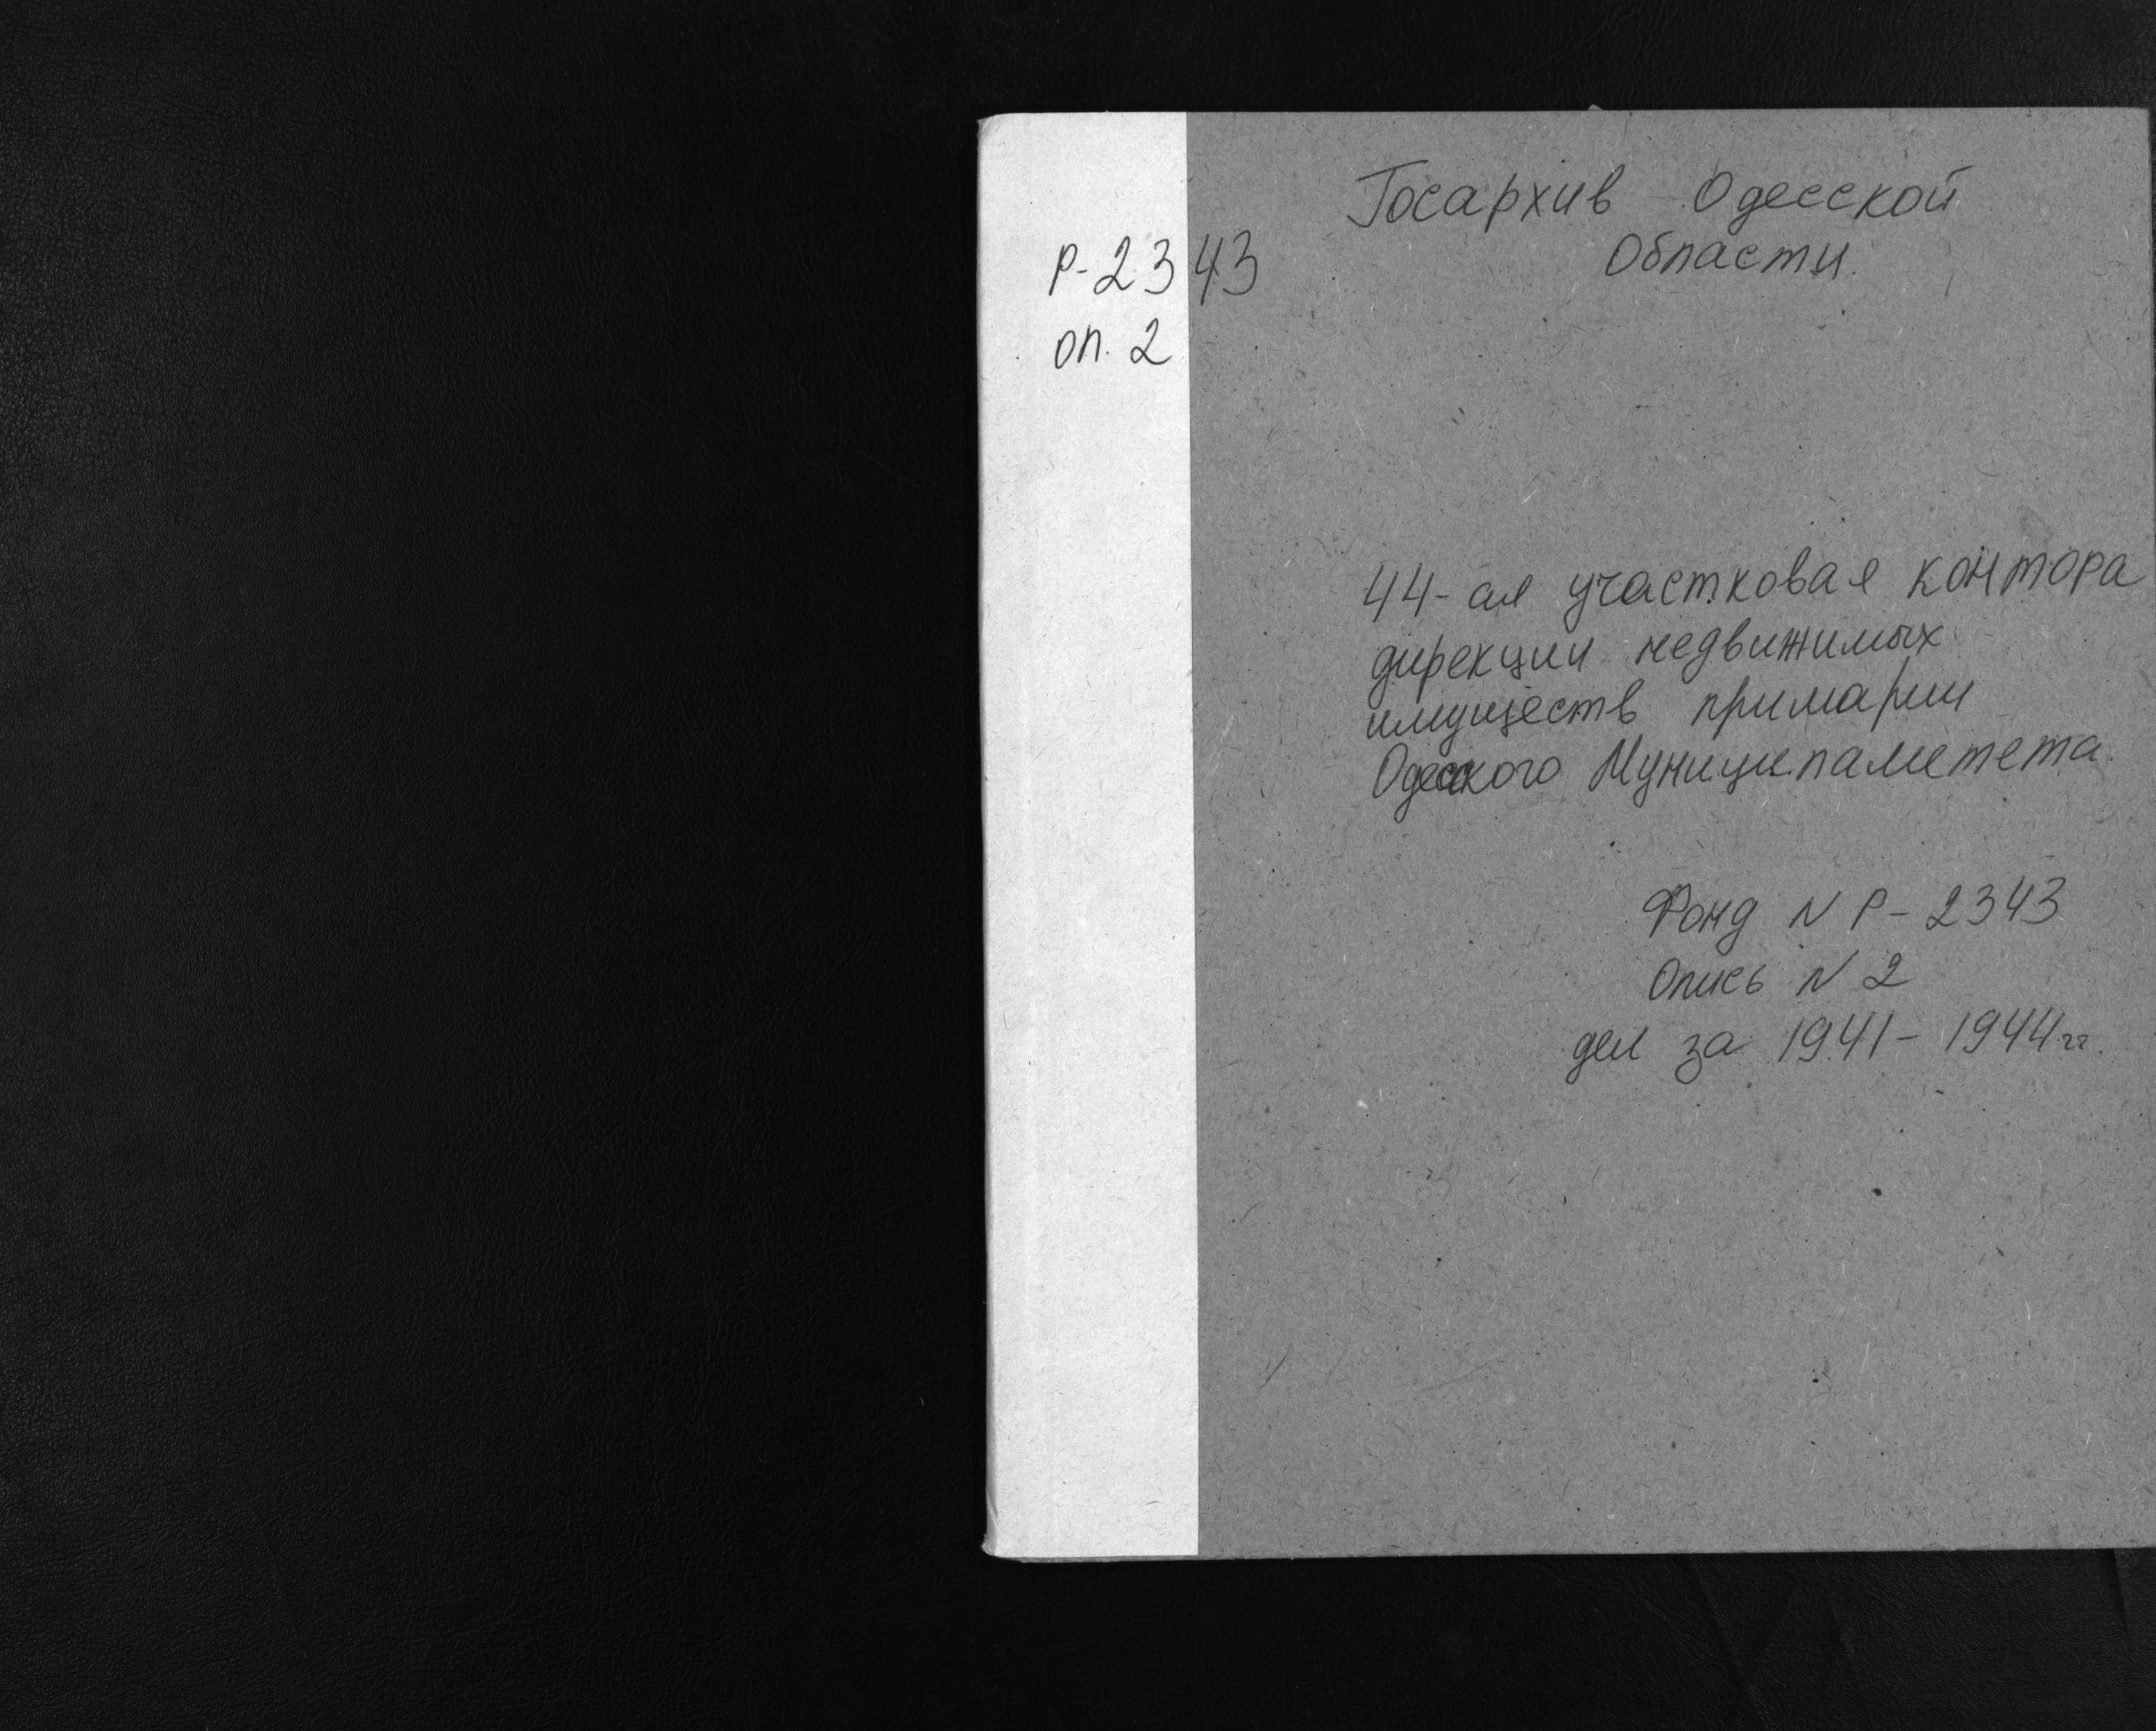 Госархив Одесской
Области.
Р-2343
оп. 2
44-ая участковая контора
дирекции недвижимых
имуществ примарии
Одесского Муниципалитета.
Фонд N Р-2343
Опись N 2
дел за 1941-1944гг.